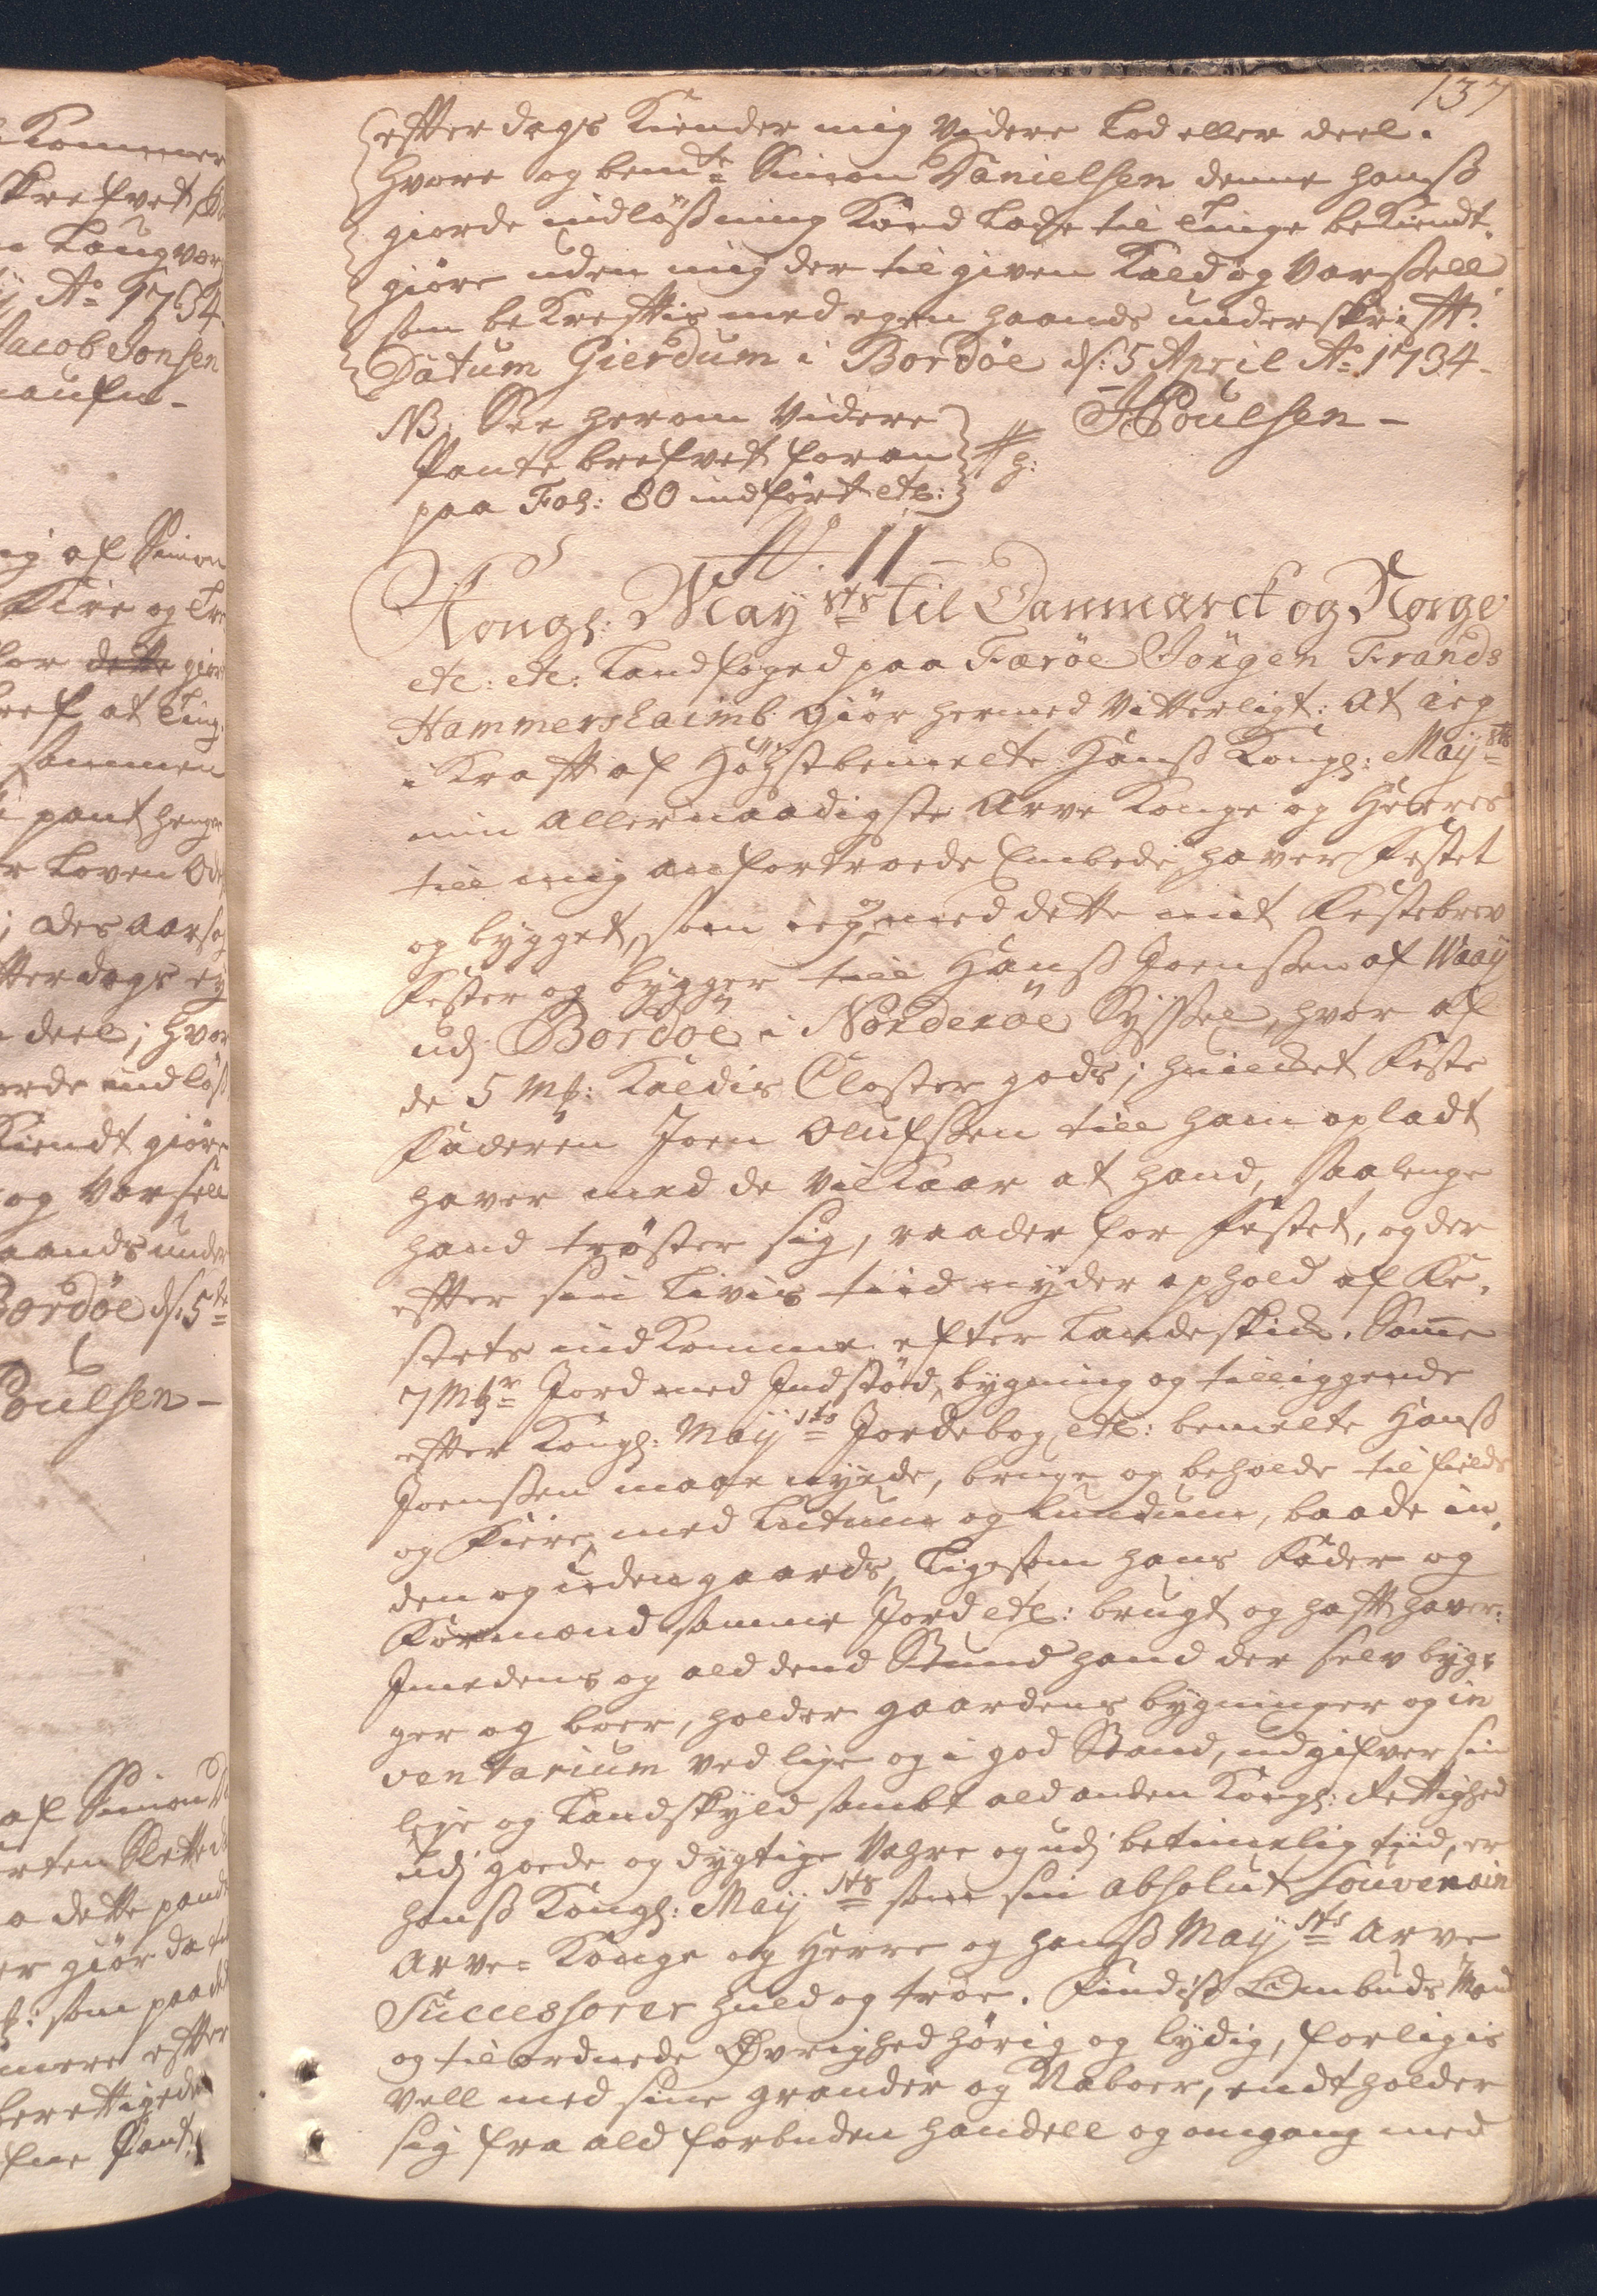 137
effter dags Kiender mig Videre Lod eller deel.
Hvore og bem.te Simon Danielsen denne hanß
giorde indlößning Kand lade til Tinge bekiendt-
giöre uden mig der til given Kald og Varßell.
som bekrefftis med egen haands underskrifft.
Datum Gierdum i Bordöe d: 5 April A:o 1734.
JPoulsen –
NB: See herom Videre
Pantebrefvet foran
paa Fol: 80 indfört etc:
N.o 11
Kongl: May.sts til Danmarck og Norge
etc: etc: Landfoged paa Færöe Jörgen Frands
Hammershaimb Giör hermed Vitterligt: At ieg
i Krafft af Höystbemelte Hanß Kongl: May.sts
min Allernaadigste Arve Konge og Herres
till mig anfortroede Embede, haver Festet
og bygget, som ieg og med dette mit Festebrev
Fester og bygger till Hanß Joenßen af Waaÿ
udj Bordöe i Norderöe Syßel, hvor af
de 5 Mk: Kaldis Closter gods; huilcket Feste
Faderen Joen Olufßen till ham opladt
haver med de Vilkaar at hand, saalenge
hand tröster sig, raader for Festet, og der
effter sin Livis tiid nyder ophold af Fe-
stets indkomme, efter Landeskick. Samme
7 Mk.r Jord med Indstöd, bygning og tilliggende
effter Kongl: Maÿ.sts Jordebog, etc: bemelte Hanß
Joenßen maae nyde, bruge og beholde til fields
og Fiære, med Lutum og Lundum, baade in-
den og uden gaards, Ligesom hans Fader og
Formand samme Jord etc: brugt og hafft haver:
Imedens og ald dend Stund hand der selv byg-
ger og boer, holder gaardens bygninger og in
ventarium ved lige og i god Stand, udgifver sin
leye og Landskyld sambt ald anden Kongl: Rettighed
udj goede og dygtige Vahre og udj betimelig tiid, er
hanß Kongl: Maÿ.sts som sin absolut souverain
Arve- Konge og Herre og hanß Maÿ.sts Arve
Successorer huld og troe. Findiß Ombuds Mand
og tilordnede Øvrighed hörig og lydig, forligis
vell med sine grander og Naboer, endt holder
sig fra ald forbuden handell og omgang med